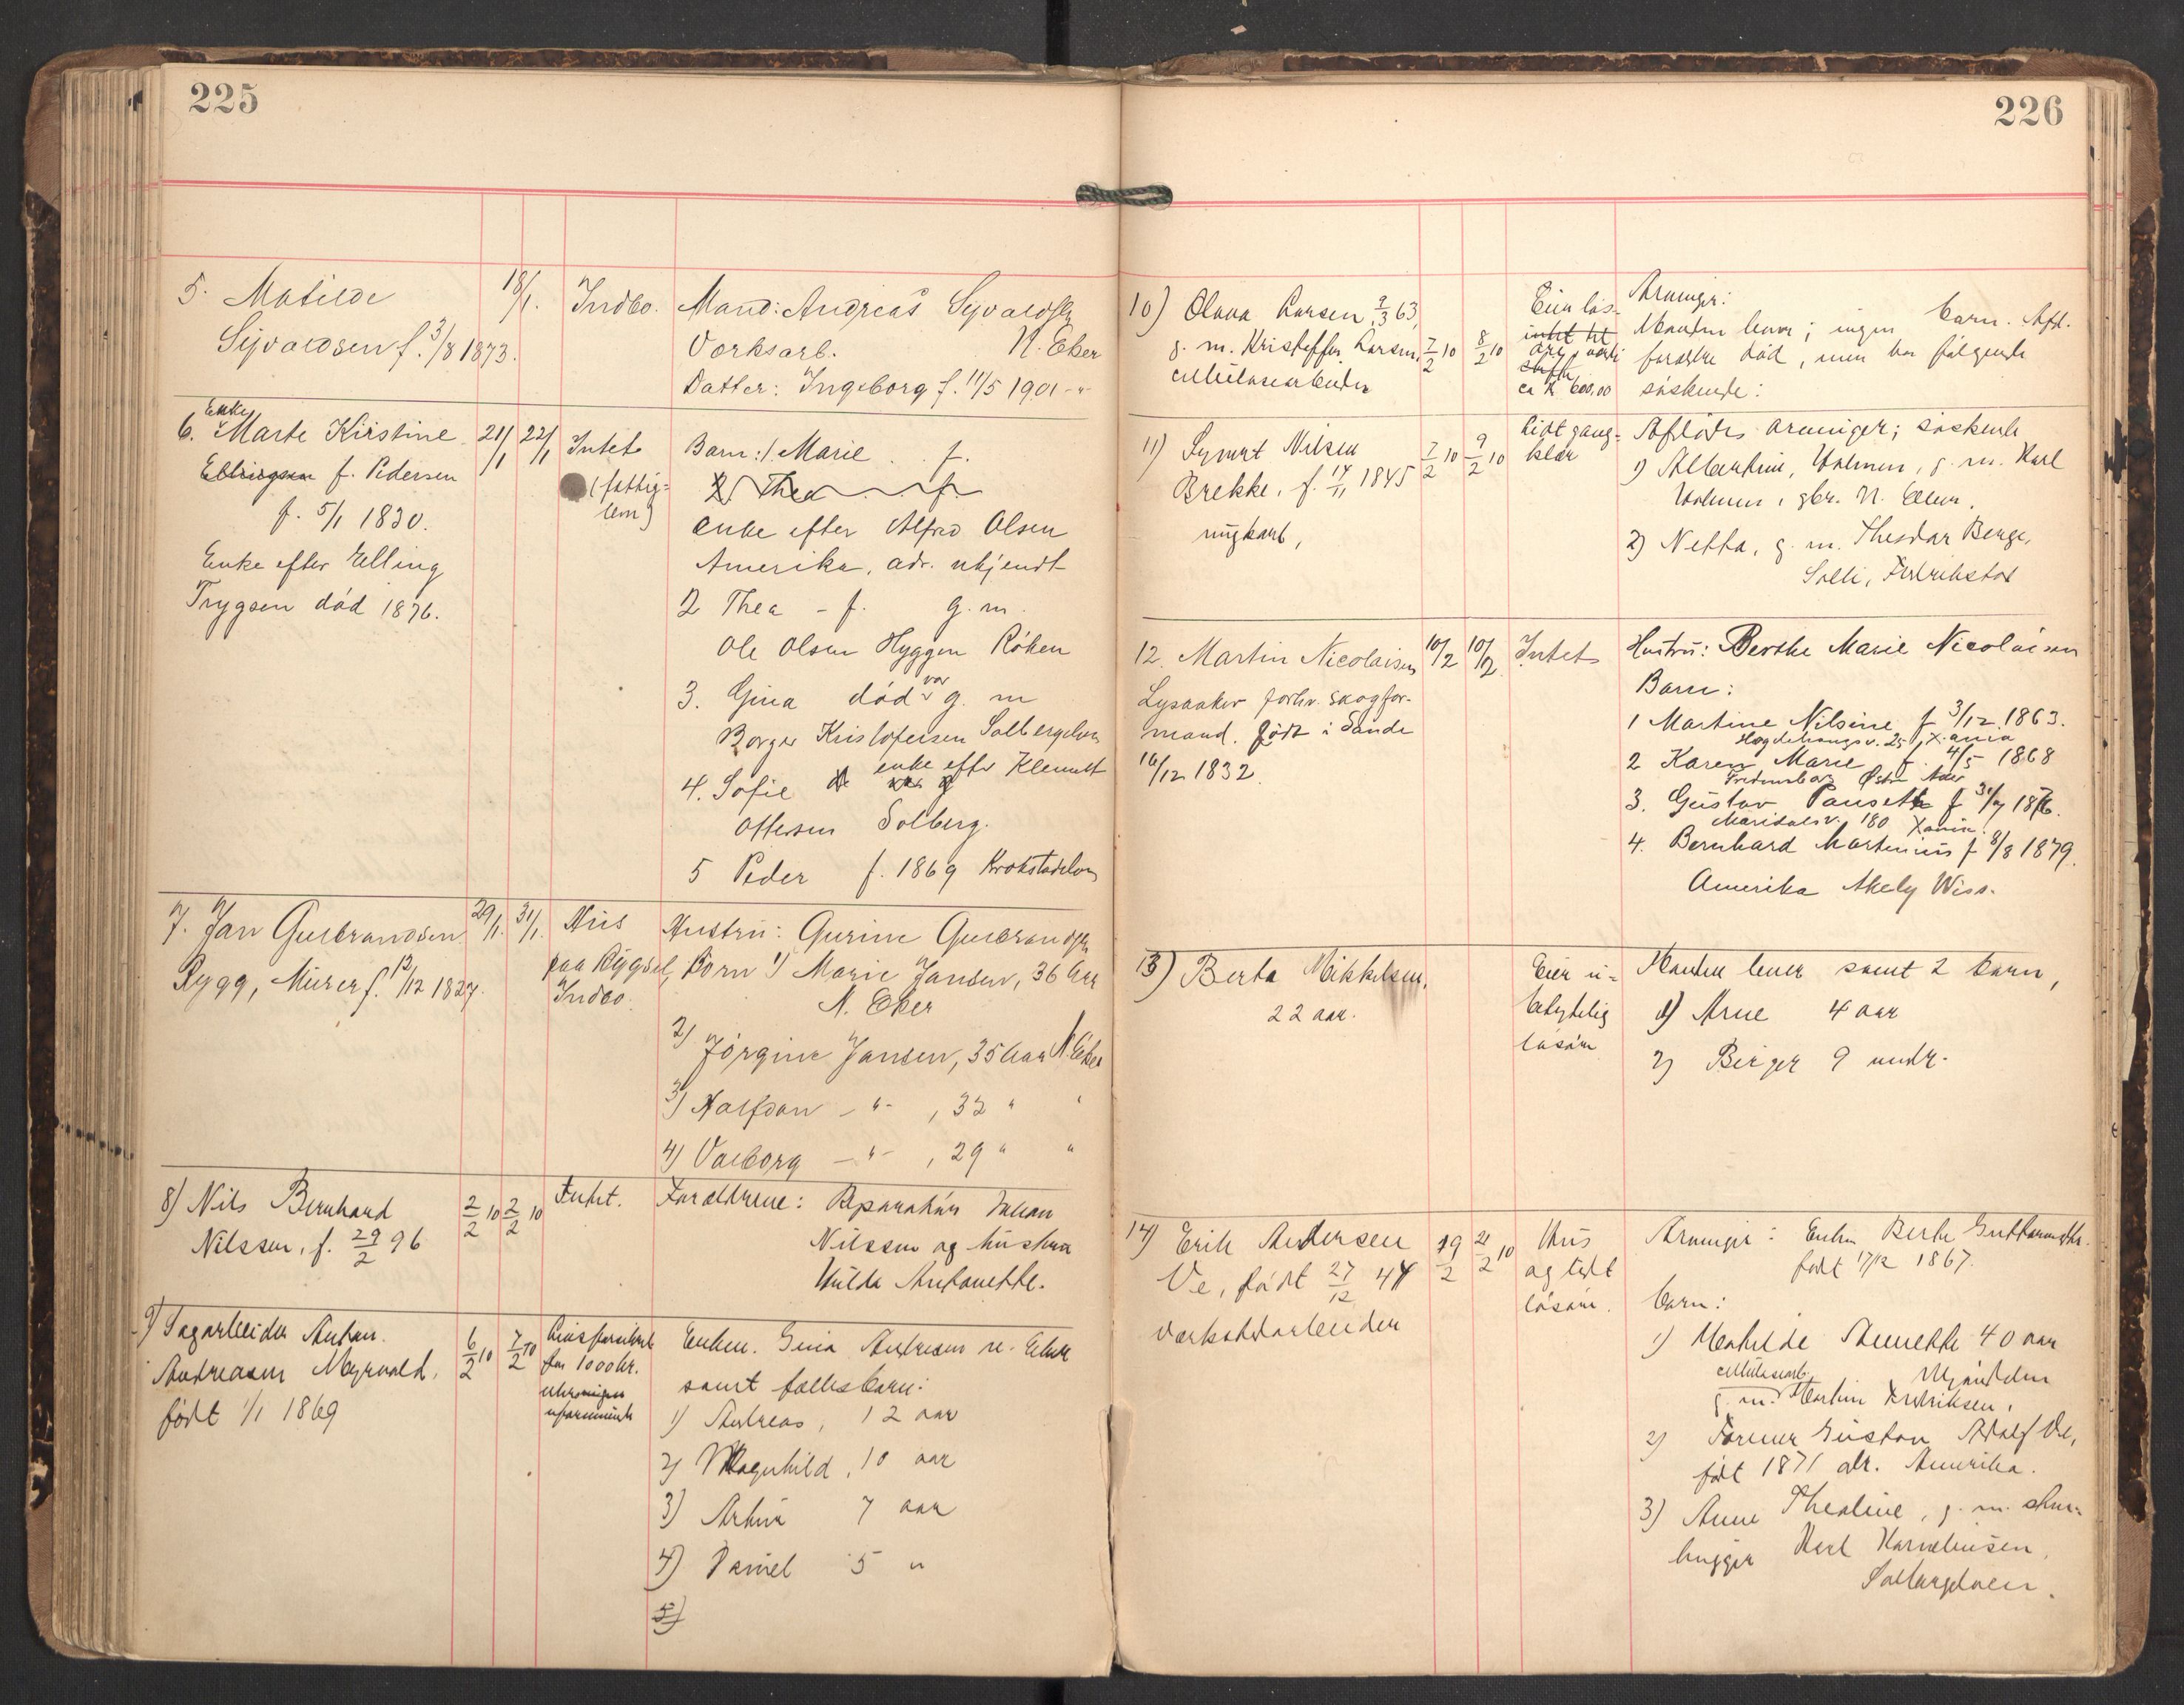 225
5. Matilde 18/1. Indbo. Mand: Andreas Syvaldsen
Syvaldsen f. 3/8 1873. Verksarb. N. Eker
Datter: Ingeborg f. 11/5 1901 -"-
Enke
6. Marte Kirstine 21/1 22/1 Intet Barn: 1 Marie . . f.
Ellingsen f. Pedersen (fattig- 2) Thea . . . f.
f. 5/1 1830. lem) enke efter Alfred Olsen
Enke efter Elling Amerika, adr. ukjendt
Trygsen död 1876. 2 Thea - f. g. m.
Ole Olsen Hyggen Röken
3. Gina död var g. m
Borger Kristofersen Solbergelven
4. Sofie enke efter Klemmet
Ottersen Solberg.
5 Peder f. 1869 Krokstadelven
7. Jan Gulbrandsen 29/1. 31/1. Hus Hustru: Gurine Gulbrandsen
Rygg, Murer f. 12/12 1827. paa Rygsel, Børn 1) Marie Jansen, 36 Aar
Indbo. N. Eker
2) Jörgine Jansen, 35 Aar N. Eker
3) Halfdan -"- , 32 " "
4) Valborg -"- , 29 " "
8) Nils Bernhard 2/2 10 2/2 10 Intet. Forældrene: Reparatör Johan
Nilssen, f. 29/2 96 Nilssen og hustru
Hulda Antonette.
9) Sagarbeider Anton 6/2 10 7/2 10 Enken. Gina Andresen N. Eker
Andreasen Myrvold, for 1000 kr. samt fælles barn:
født 1/1 1869 1) Andreas, 12 aar
2) Magnhild, 10 aar
3) Artur 7 aar
4) Daniel 5 "
5)
226
10) Olava Larsen 9/3 63, Eier løs- Arvinger:
g. m. Kristoffer Larsen, 7/2 10 8/2 10 Manden lever; ingen barn. Afd.
cellulosearbeider forældre död, men har følgende
ca k 600,00 søskende:
11) Syvert Nilsen 7/2 10 9/2 10 Lidt gang- Afdödes arvinger; søskende
Brekke, f. 14/11 1845 klær 1) Albertine, Holmen, g. m. Karl
ungkarl, Holmen, gbr. N. Eker.
2) Netta, g. m. Theodor Berge,
Solli, Fredrikstad
12. Martin Nicolaisen 10/2 10/2 Intet Hustru: Berthe Marie Nicolaisen
Lysaaker forhv. skogfor- Barn:
mand. født i Sande 1 Martine Nilsine f 3/12 1863.
16/12 1832. Hægdehaugsv. 25, X.ania
2 Karen Marie f. 4/5 1868
3. Gustav f 31/7 1876.
Maridalsv. 180 Xania.
4. Bernhard Martinius f 8/8 1879.
Amerika Akely Wiss.
13) Berta Mikkelsen, Eier u- Manden lever samt 2 barn,
22 aar. betydelig 1) Arne 4 aar
løsøre 2) Birger 9 mndr.
14) Erik Andersen 19/2 21/2 10 Hus Arvinger: Enken Berte Guttormsdtr.
Ve, født 27/12 44 og lidt født 17/12 1867.
verkstedarbeider løsøre. barn:
1) Mathilde Annette 40 aar
cellulosearb. Mjøndalen
g. m. Martin Fredriksen,
2) Former Gustav Adolf Ve,
født 1871 adr. Amerika.
3) Anne Thealine, g. m. sten-
hugger Karl Karneliusen,
Solbergelven.